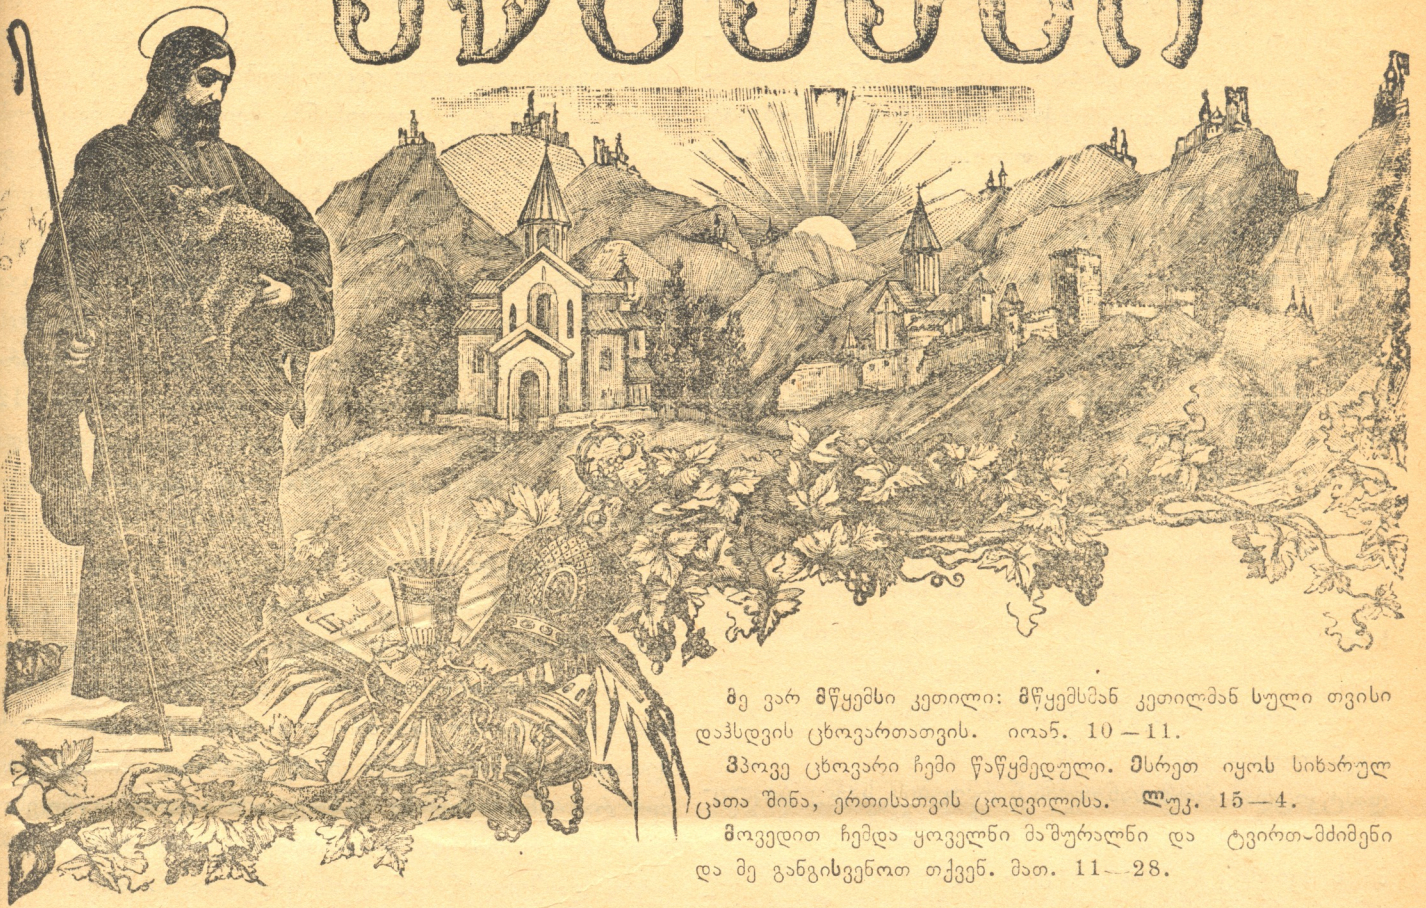 მე ვარ მწყემსი კეთილი: მწყემსმან კეთილმან სული თვისი
დაჰსდვის ცხოვართათვის. იოან. 10 — 11.
ვპოვე ცხოვარი ჩემი წაწყმედული. ესრეთ იყოს სიხარულ
ცათა შინა, ერთისათვის ცოდვილისა. ლუკ. 15—4.
მოვედით ჩემდა ყოველნი მაშურალნი და ტვირთ-მძიმენი
და მე განგისვენოთ თქვენ. მათ. 11—28.